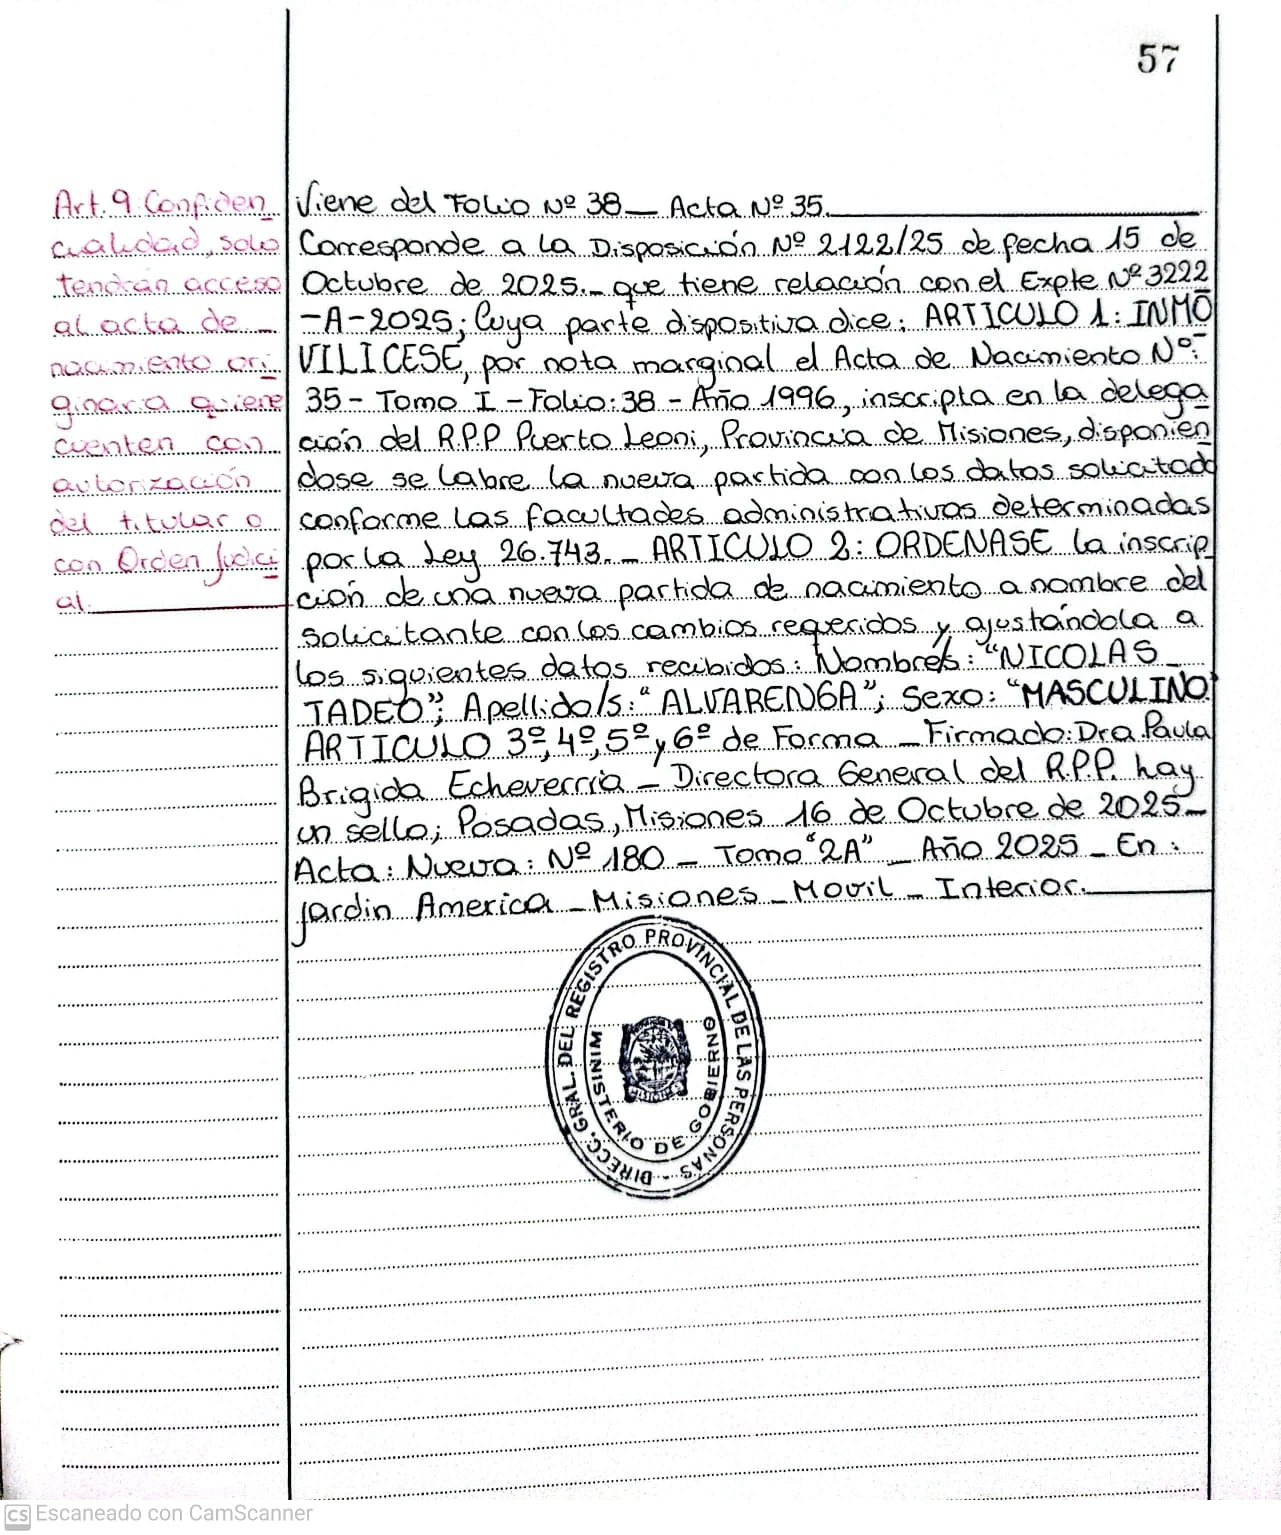 57
Art. 9 Confiden
cialidad, solo
tendrán acceso
al acta de _
nacimiento ori
ginaria quiene
cuenten con
autorización
del titular o
con Orden Judici
al.
Viene del Folio Nº 38 _ Acta Nº 35.
Corresponde a la Disposición Nº 2122/25 de fecha 15 de
Octubre de 2025._ que tiene relación con el Expte Nº 3222
-A-2025; Cuya parte dispositiva dice: ARTICULO 1: INMO
VILICESE, por nota marginal el Acta de Nacimiento Nº:
35 - Tomo I - Folio: 38 - Año 1996, inscripta en la delega
ción del R.P.P Puerto Leoni, Provincia de Misiones, disponien
dose se labre la nueva partida con los datos solicitad
conforme las facultades administrativas determinadas
por la Ley 26.743._ ARTICULO 2: ORDENASE la inscrip
ción de una nueva partida de nacimiento a nombre del
solicitante con los cambios requeridos y ajustándola a
los siguientes datos recibidos: Nombre/s: "NICOLAS _
TADEO"; Apellido/s: "ALVARENGA"; Sexo: "MASCULINO"
ARTICULO 3º, 4º, 5º y 6º de Forma _ Firmado: Dra. Paula
Brigida Echeverria _ Directora General del R.P.P. hay
un sello; Posadas, Misiones 16 de Octubre de 2025 _
Acta: Nueva: Nº 180 _ Tomo "2A" _ Año 2025 _ En:
Jardin America _ Misiones _ Movil _ Interior.
DIRECC. GRAL. DEL REGISTRO PROVINCIAL DE LAS PERSONAS
MINISTERIO DE GOBIERNO
MISIONES
CS Escaneado con CamScanner